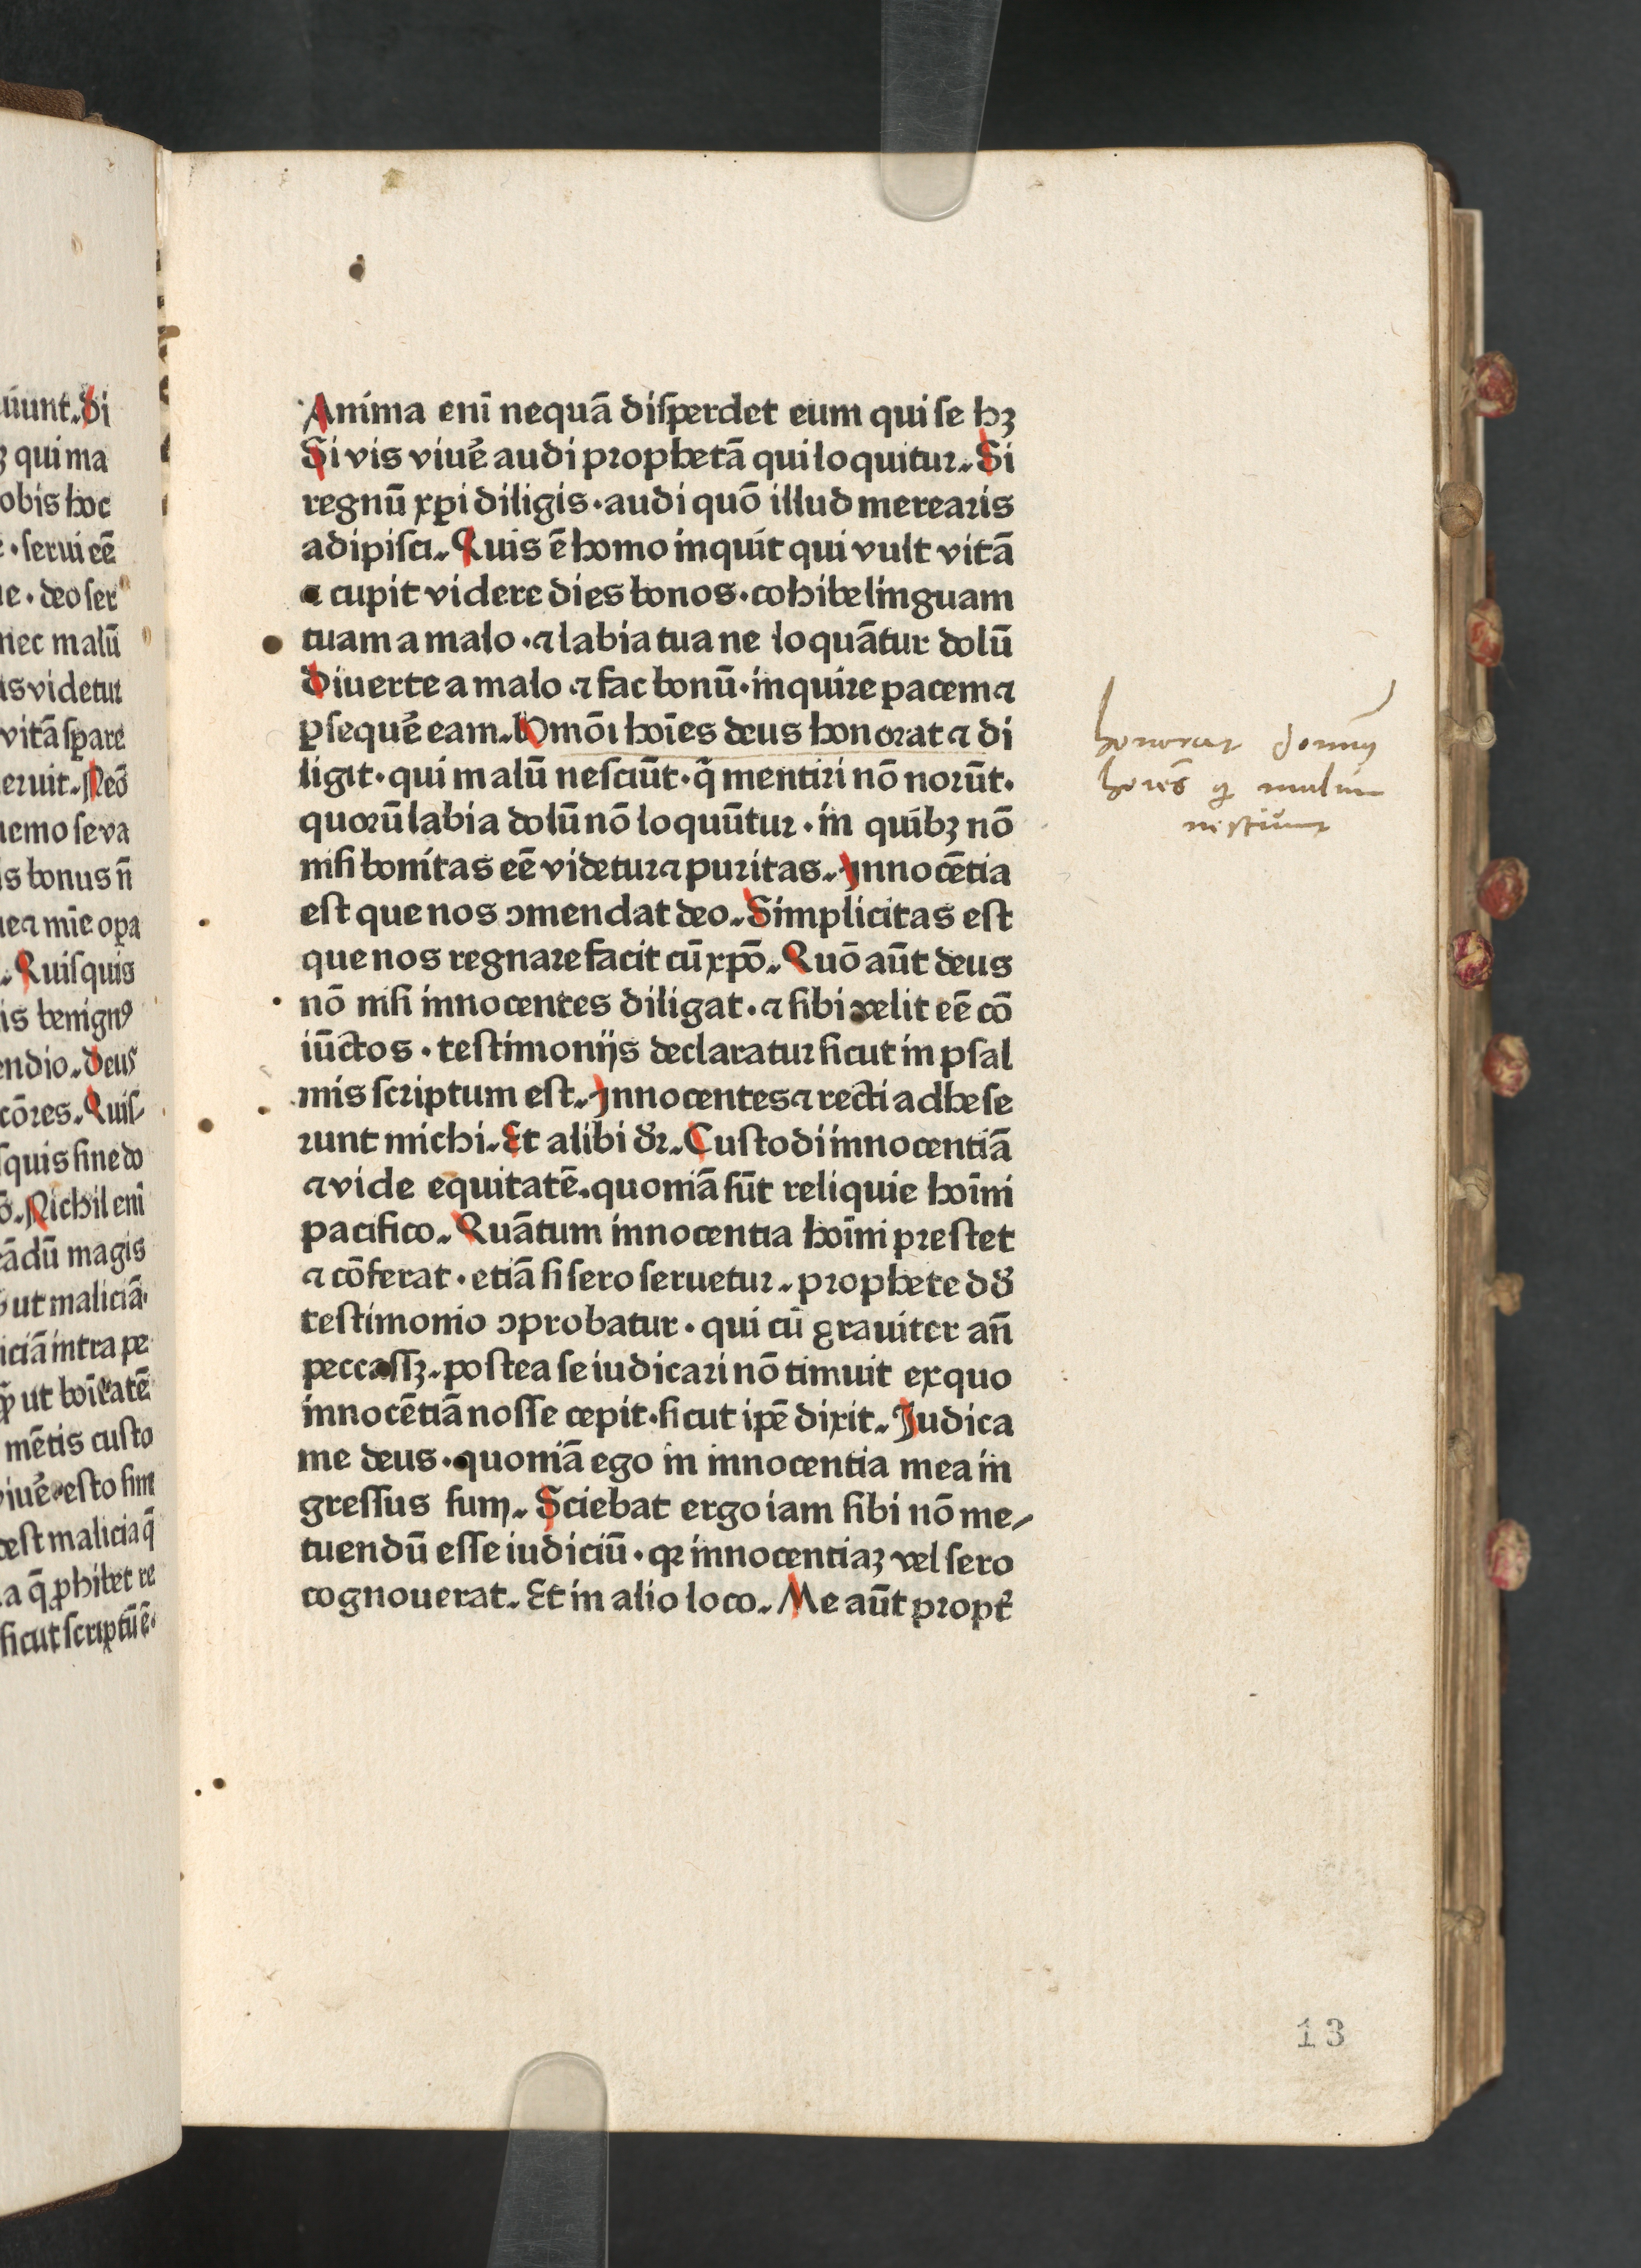 uiunt. Di
ꝫ qui ma
obis hoc
e · serui eē
ne · deo ser
nec malū
us videtur
vitā spare
eruit. Neō
nemo se va
is bonus n̄
uea mīe oꝑa
. Quisquis
is benignꝰ
endio. Deus
cōres. Quis
squis sine do
. Nichil enī
eādū magis
ut maliciā·
iciā intra pe
ut boītatē
mētis custo
viuē · esto sine
est malicia q̄
a q̄ ꝓhibet re
sicut scriptū ē·
Anima enī nequā disperdet eum qui se hꝫ
Si vis viuē audi prophetā qui loquitur. Si
regnū xpi diligis · audi quō illud merearis
adipisci. Quis ē homo inquit qui vult vitā
⁊ cupit videre dies bonos · cohibe linguam
tuam a malo · ⁊ labia tua ne loquātur dolū
Diuerte a malo ⁊ fac bonū · inquire pacem ⁊
ꝑsequē eam. Hōmōi hoīes deus honorat ⁊ di
ligit · qui malū nesciūt · q̄ mentiri nō norūt.
quorū labia dolū nō loquūtur · in quibꝫ nō
nisi bonitas eē videtur ⁊ puritas. Innocētia
est que nos ɔmendat deo. Simplicitas est
que nos regnare facit cū xpō. Quō aūt deus
nō nisi innocentes diligat · ⁊ sibi velit eē cō
iūctos · testimoniis declaratur sicut in psal
mis scriptum est. Innocentes ⁊ recti adhese
runt michi. Et alibi dr̄. Custodi innocentiā
⁊ vide equitatē. quoniā sūt reliquie hoīni
pacifico. Quātum innocentia hoīni prestet
⁊ cōferat · etiā si sero seruetur. prophete dd̄
testimonio ɔprobatur · qui cū grauiter an̄
peccassꝫ. postea se iudicari nō timuit ex quo
innocētiā nosse cepit · sicut ipē dixit. Iudica
me deus · quoniā ego in innocentia mea in
gressus sum. Sciebat ergo iam sibi nō me⸗
tuendū esse iudiciū · qꝛ innocentiaꝫ vel sero
cognouerat. Et in alio loco. Me aūt propt̄
honorat domin9
hoīes q malum
nesciunt
13